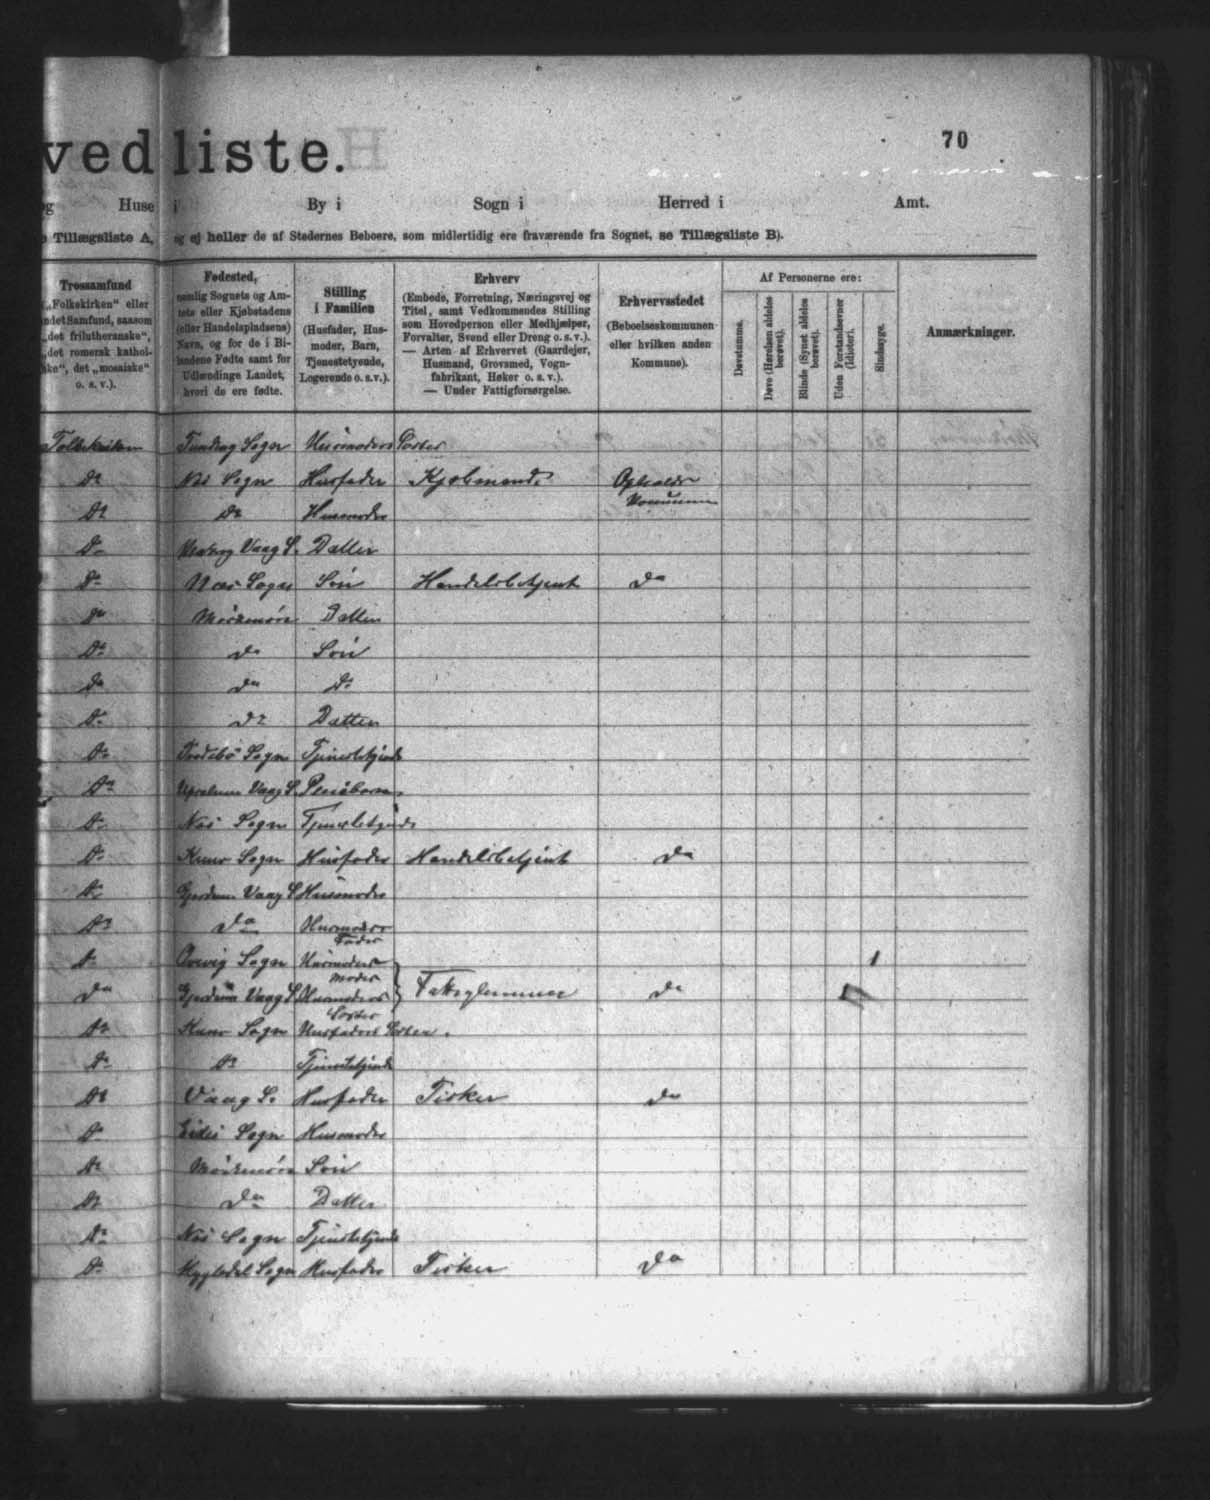 vedliste.
70
og Huse i By i Sogn i Herred i Amt.
e Tillægsliste A, og ej heller de af Stedernes Beboere, som midlertidig ere fraværende fra Sognet, se Tillægsliste B).
Trossamfund
(„Folkekirken“ eller
andet Samfund, saasom
„det frilutheranske“,
„det romersk kathol-
ske“, det „mosaiske“
o. s. v.).
Fødested,
nemlig Sognets og Am-
tets eller Kjøbstadens
(eller Handelspladsens)
Navn, og for de i Bi-
landene Fødte samt for
Udlændinge Landet,
hvori de ere fødte.
Stilling
i Familien
(Husfader, Hus-
moder, Barn,
Tjenestetyende,
Logerende o. s. v.).
Erhverv
(Embede, Forretning, Næringsvej og
Titel, samt Vedkommendes Stilling
som Hovedperson eller Medhjælper,
Forvalter, Svend eller Dreng o. s. v.).
— Arten af Erhvervet (Gaardejer,
Husmand, Grovsmed, Vogn-
fabrikant, Høker o. s. v.).
— Under Fattigforsørgelse.
Erhvervsstedet
(Beboelseskommunen
eller hvilken anden
Kommune).
Af Personerne ere:
Døvstumme.
Døve (Hørelsen aldeles
berøvet).
Blinde (Synet aldeles
berøvet).
Uden Forstandsevner
(Idioter).
Sindssyge.
Anmærkninger.
Folkekirken Funding Sogn Husmoders Søster
Do Nes Sogn Husfader Kjøbmand Opholds Kommune
Do Do Husmoder
Do Vaag S. Datter
Do Næs Sogn Søn Handelsbetjent Do
Do Datter
Do Do Søn
Do Do Do
Do Do Datter
Do Sogn Tjenestetjende
Do Vaag S. Pleiebarn
Do Nes Sogn Tjenestetjende
Do Kuno Sogn Husfader Handelsbetjent Do
Do Vaag S Husmoder
Do Do Husmoders Fader
Do Qvivig Sogn Husmoders Moder 1
Do Vaag S Husmoders Søster Fattiglemmer Do
Do Kuno Sogn Husfaders Søster.
Do Do Tjenestetjende
Do Vaag S. Husfader Fisker Do
Do Eides Sogn Husmoder
Do Søn
Do Do Datter
Do Nes Sogn Tjenestetjende
Do Sogn Husfader Fisker Do